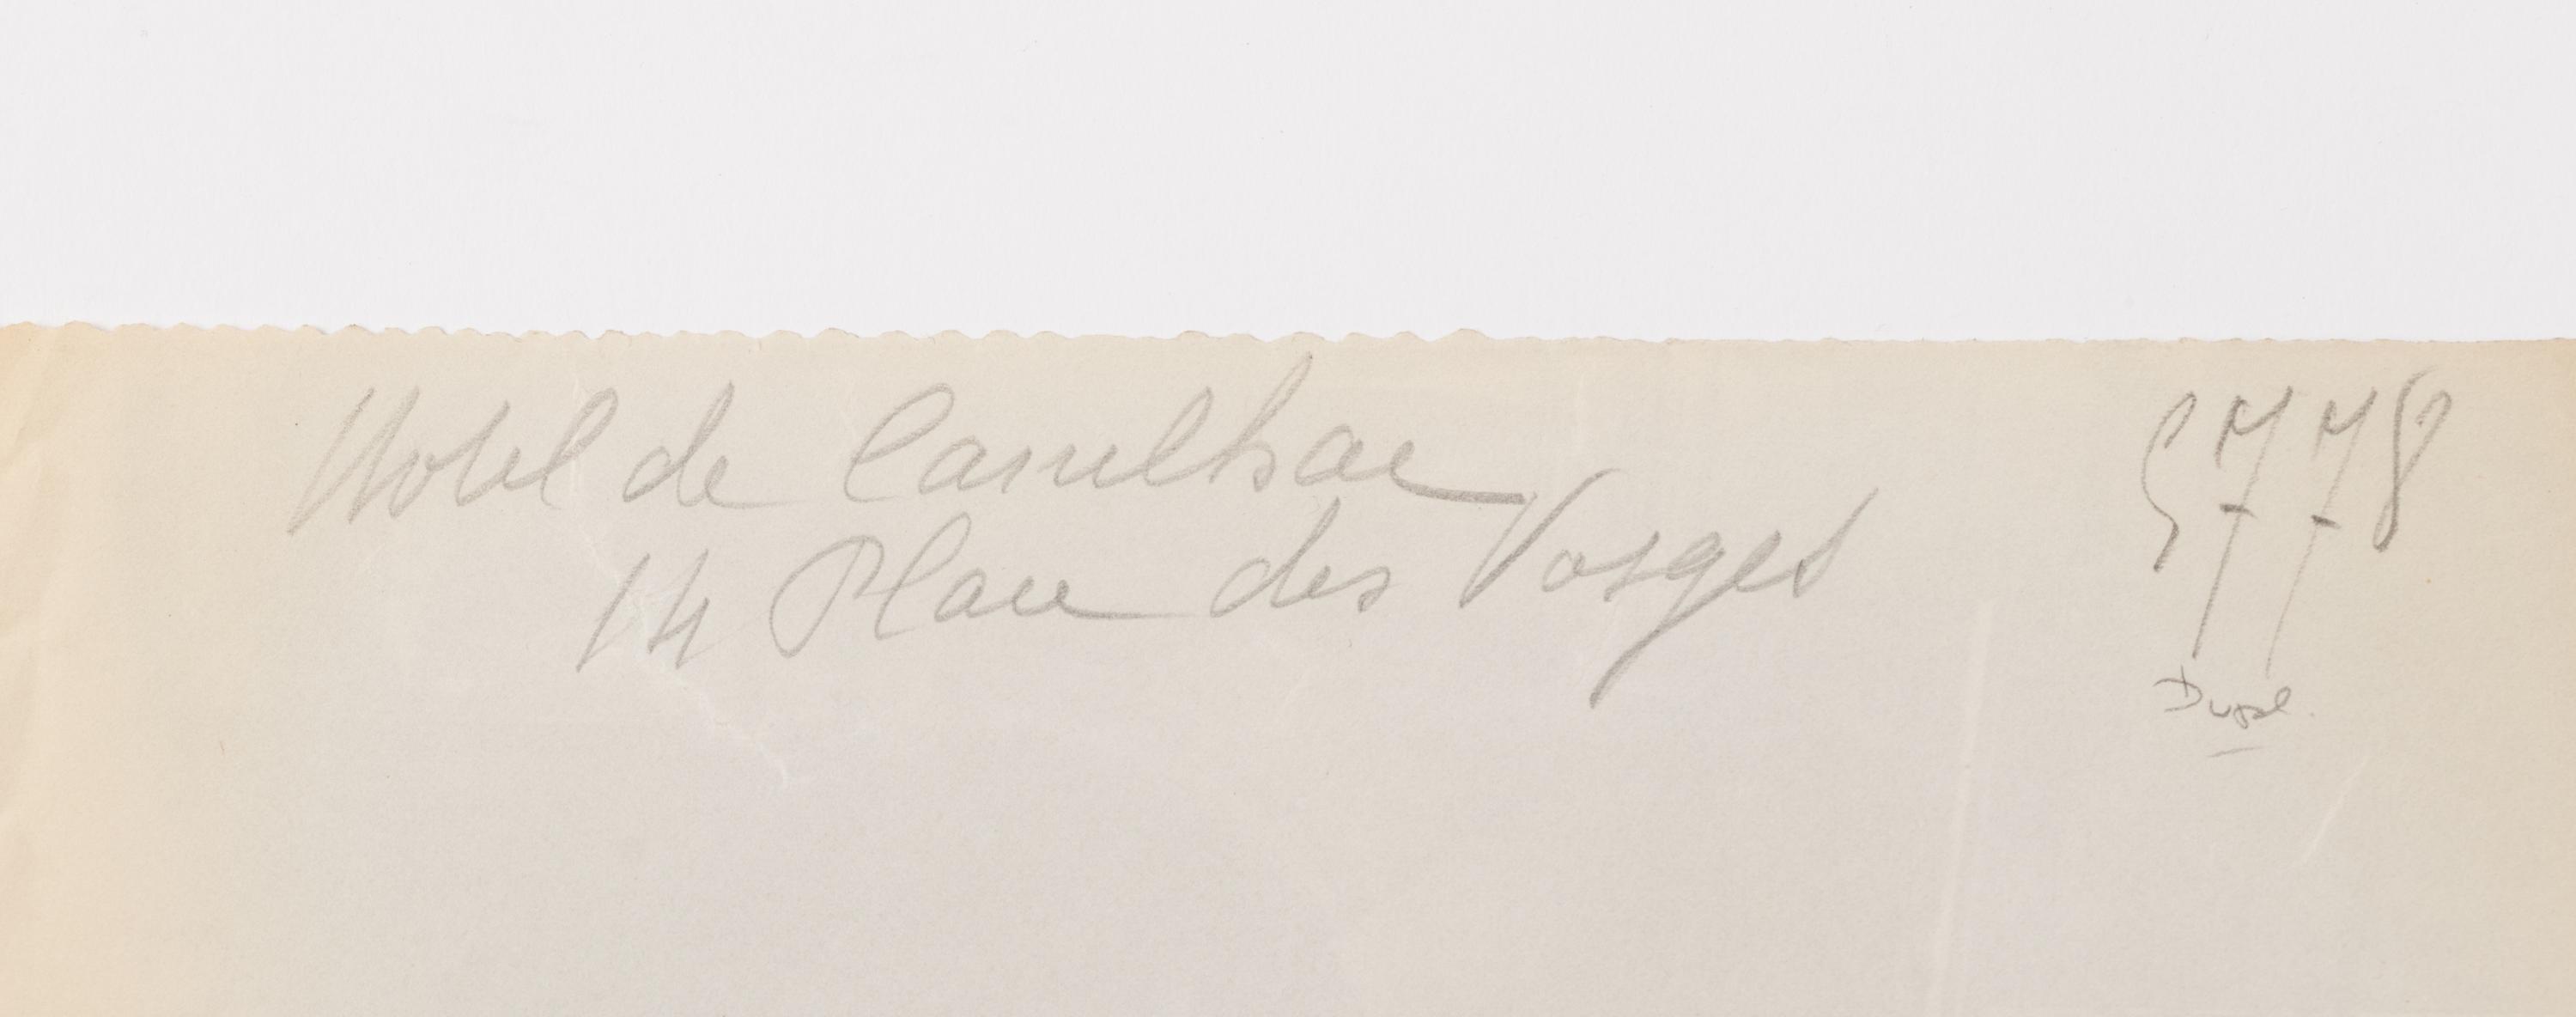 Hotel de Canilhac
14 Place des Vosges
5778
Dupl.